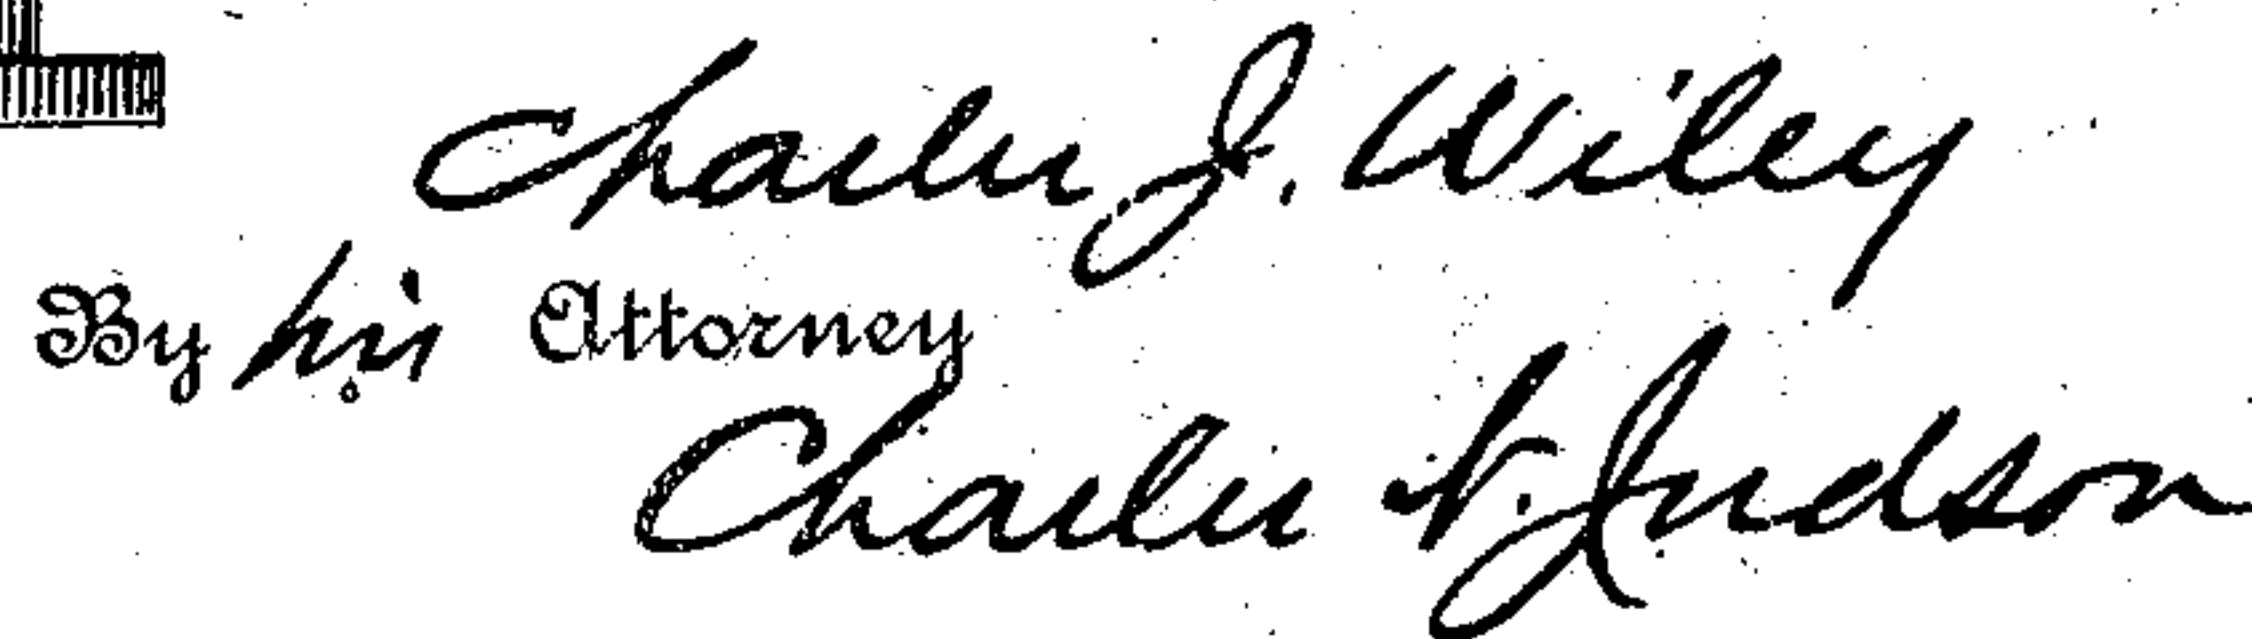 Charles J. Wiley
By his Attorney
Charles N. Judson